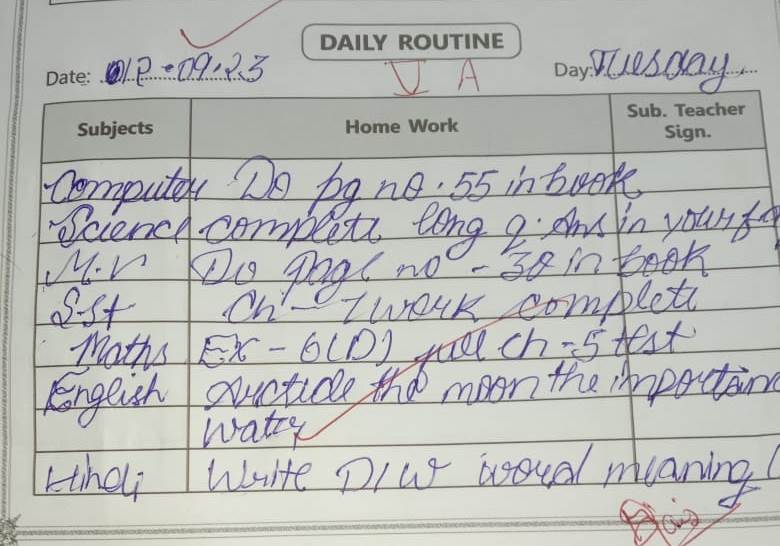 DAILY ROUTINE
Date: 12-09-23 V A Day: Tuesday
Subjects Home Work Sub. Teacher Sign.
Computer Do pg no. 55 in book
Science complete long q. Ans in your
M.V Do page no - 38 in book
S.St Ch - 7 work complete
Maths Ex - 6(D) full ch-5 test
English Article the moon the importan
Water
Hindi Write D/W word meaning (